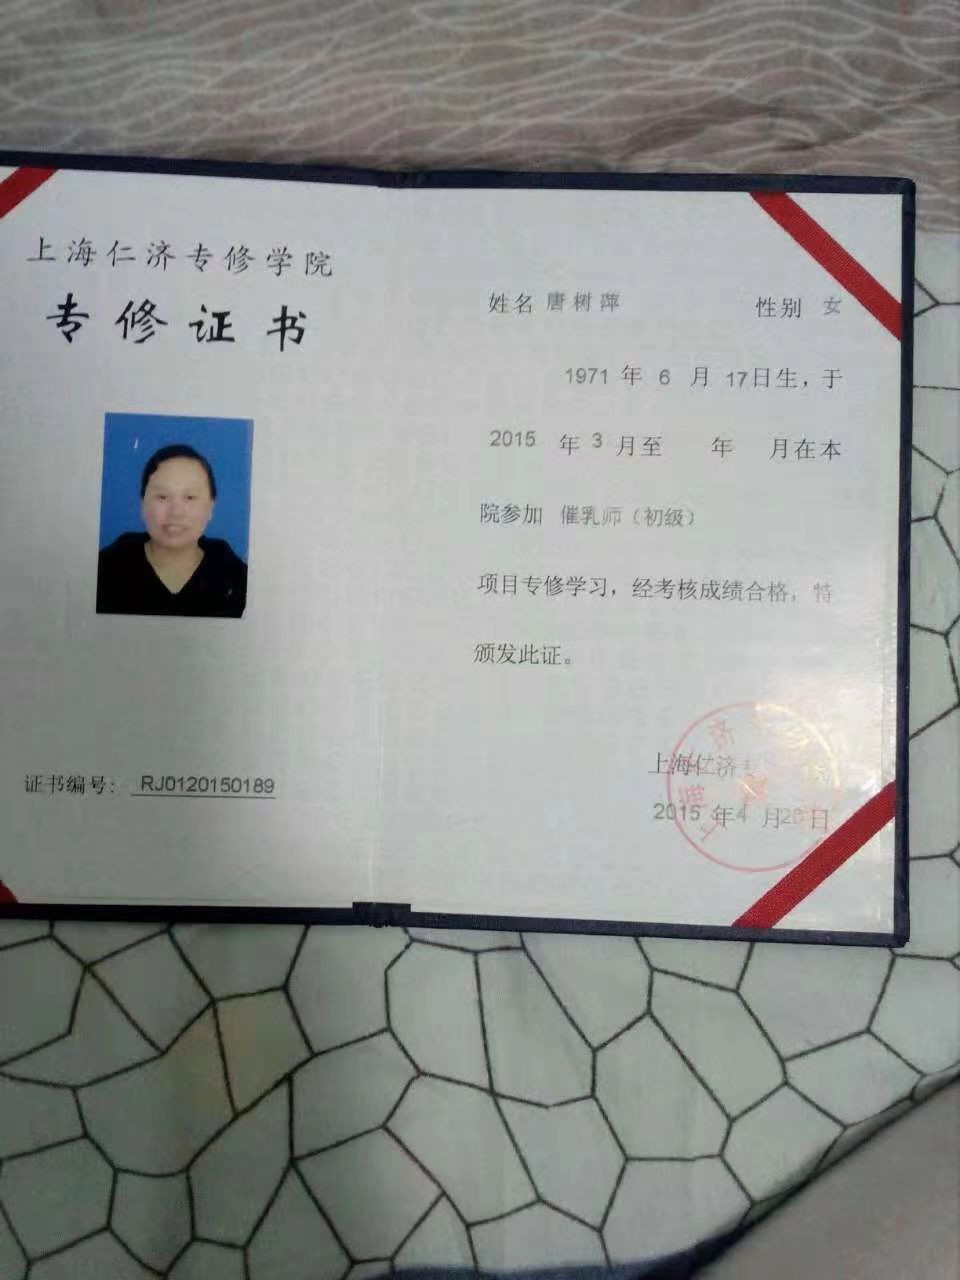 上海仁济专修学院
专修证书
证书编号: RJ0120150189
姓名 唐树萍 性别 女
1971 年 6 月 17日生,于
2015 年 3 月至 年 月在本
院参加 催乳师（初级）
项目专修学习，经考核成绩合格，特
颁发此证。
上海仁济专
2015 年4 月28日